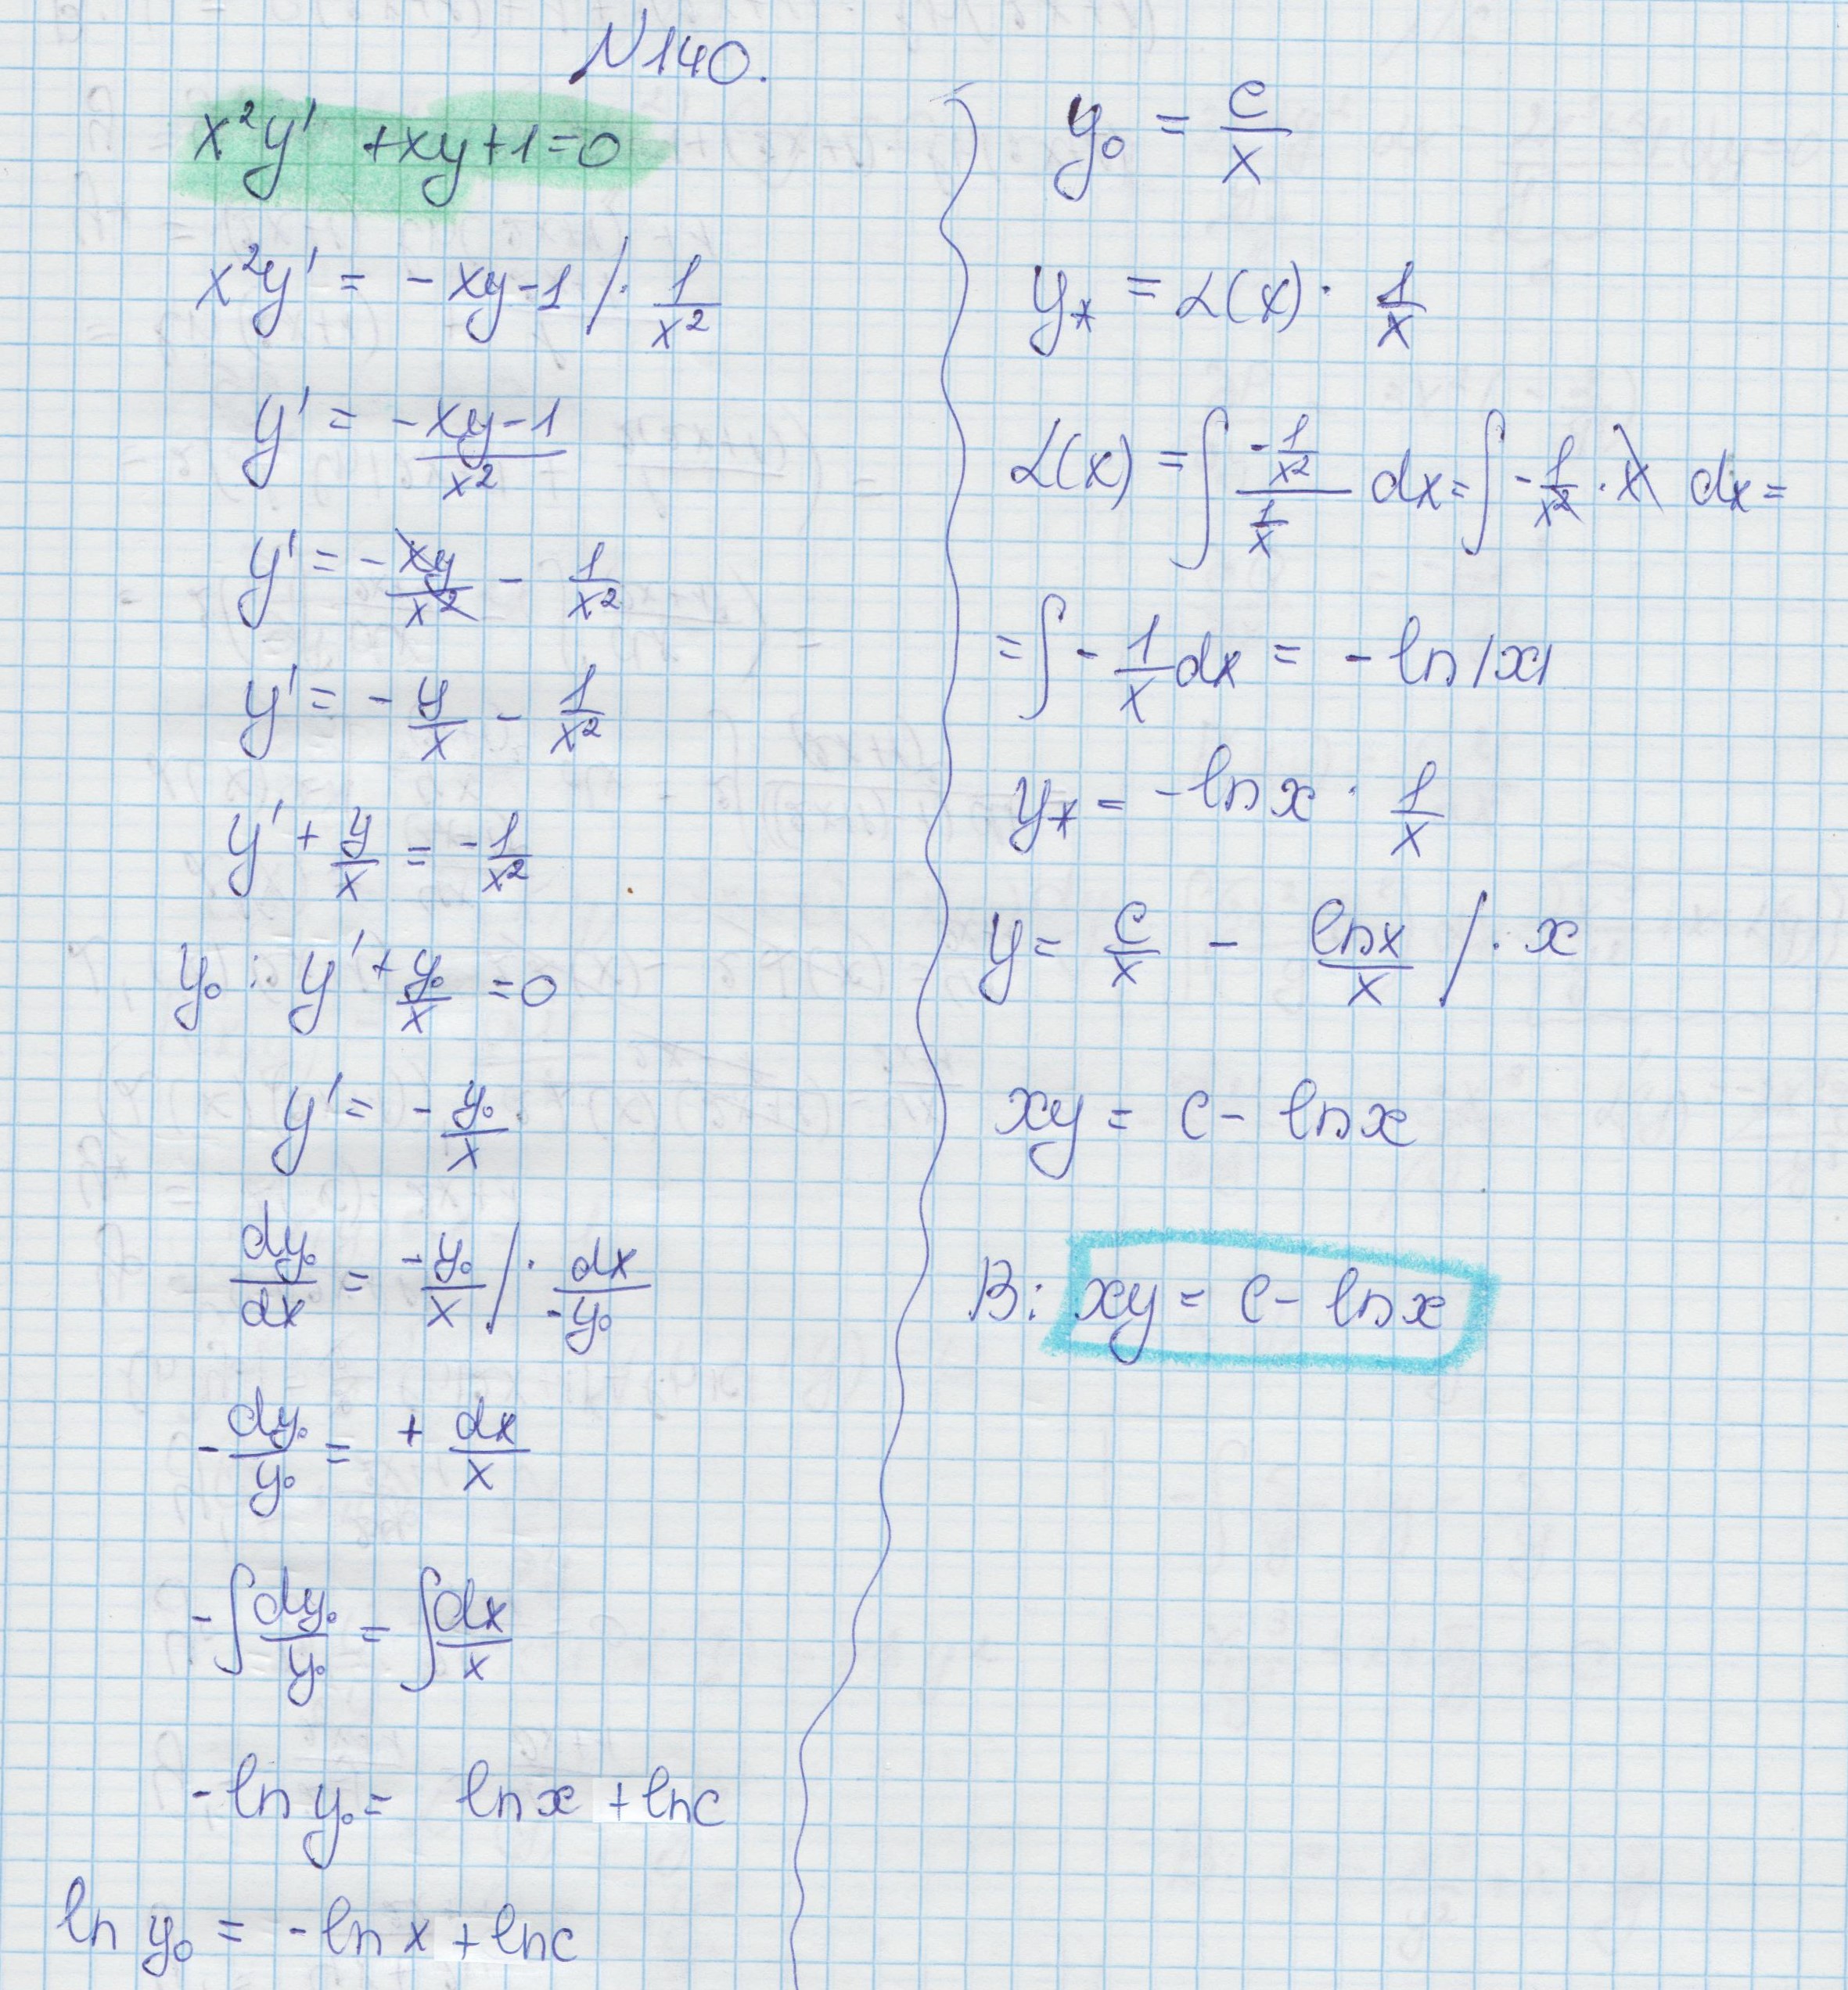 N140.
x²y' + xy + 1 = 0
x²y' = - xy - 1 / · 1/x²
y' = (-xy - 1)/x²
y' = - xy/x² - 1/x²
y' = - y/x - 1/x²
y' + y/x = - 1/x²
y₀ : y' + y₀/x = 0
y' = - y₀/x
dy₀/dx = -y₀/x / · dx/-y₀
- dy₀/y₀ = + dx/x
- ∫ dy₀/y₀ = ∫ dx/x
- ln y₀ = ln x + ln c
ln y₀ = - ln x + ln c
y₀ = c/x
y* = α(x) · 1/x
α(x) = ∫ (-1/x²)/(1/x) dx = ∫ - 1/x² · x dx =
= ∫ - 1/x dx = - ln |x|
y* = - ln x · 1/x
y = c/x - ln x/x / · x
xy = c - ln x
В: xy = c - ln x